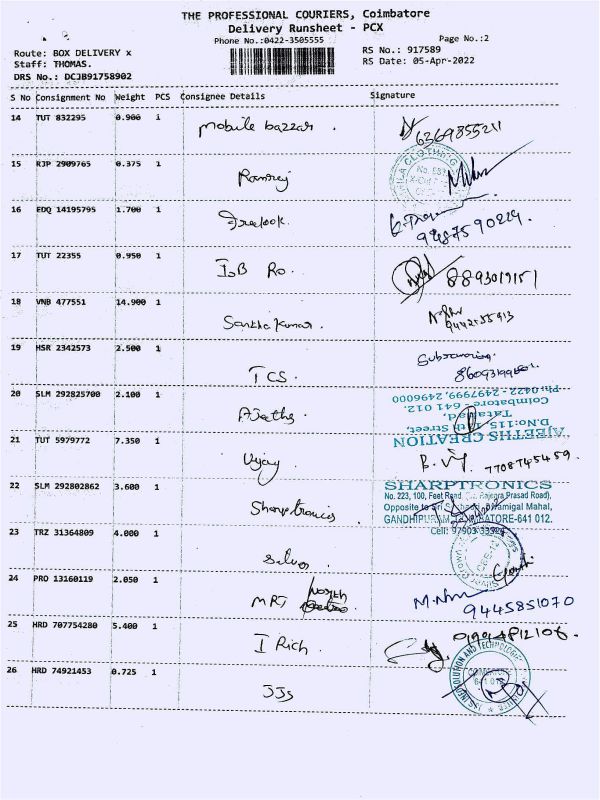 THE PROFESSIONAL COURIERS, Coimbatore
Delivery Runsheet - PCX
Phone No.:0422-3505555
Page No.:2
Route: BOX DELIVERY x
RS No.: 917589
Staff: THOMAS.
RS Date: 05-Apr-2022
DRS No.: DCJB91758902
S No Consignment No Weight PCS Consignee Details Signature
14 TUT 832295 0.900 1 Mobile bazzar. 6369855211
15 RJP 2909765 0.375 1 Ramraj
16 EDQ 14195795 1.700 1 Freelook. 9487590224.
17 TUT 22355 0.950 1 IOB RO. 8893019151
18 VNB 477551 14.900 1 Santha Kumar.
19 HSR 2342573 2.500 1 TCS.
20 SLM 292825700 2.100 1 Ajeeths
AJEETHS CREATION
D.No:115, Street,
Tatabad,
Coimbatore - 641 012.
Ph: 0422 - 2497999, 2496000
21 TUT 5979772 7.350 1 Vijay 7708745459.
22 SLM 292802862 3.600 1 Sharptronics
SHARPTRONICS
No. 223, 100, Feet Road, Rajendra Prasad Road),
Opposite to Sri Swamigal Mahal,
GANDHIPURAM, COIMBATORE-641 012.
Cell: 97903
23 TRZ 31364809 4.000 1 Silver
24 PRO 13160119 2.050 1 MRT North 9445851070
25 HRD 707754280 5.400 1 I Rich.
26 HRD 74921453 0.725 1 JJs